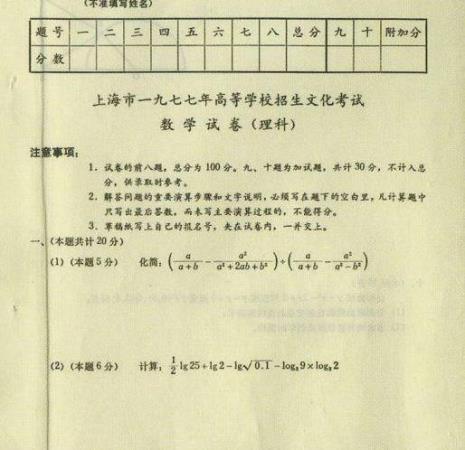 (不准填写姓名)
题号 一 二 三 四 五 六 七 八 总分 九 十 附加分
分数
上海市一九七七年高等学校招生文化考试
数学试卷(理科)
注意事项:
1. 试卷的前八题,总分为100分。九、十题为加试题,共计30分,不计入总
分,供录取时参考。
2. 解答问题的重要演算步骤和文字说明,必须写在题下的空白里,凡计算题中
只写出最后答数,而未写主要演算过程的,不能得分。
3. 草稿纸写上自己的报名号,夹在试卷内,一并交上。
一、(本题共计20分)
(1)(本题5分) 化简:(a/(a+b) - a²/(a²+2ab+b²))÷(a/(a+b) - a²/(a²-b²))
(2)(本题6分) 计算:1/2 lg25+lg2-lg√0.1-log₂9×log₃2